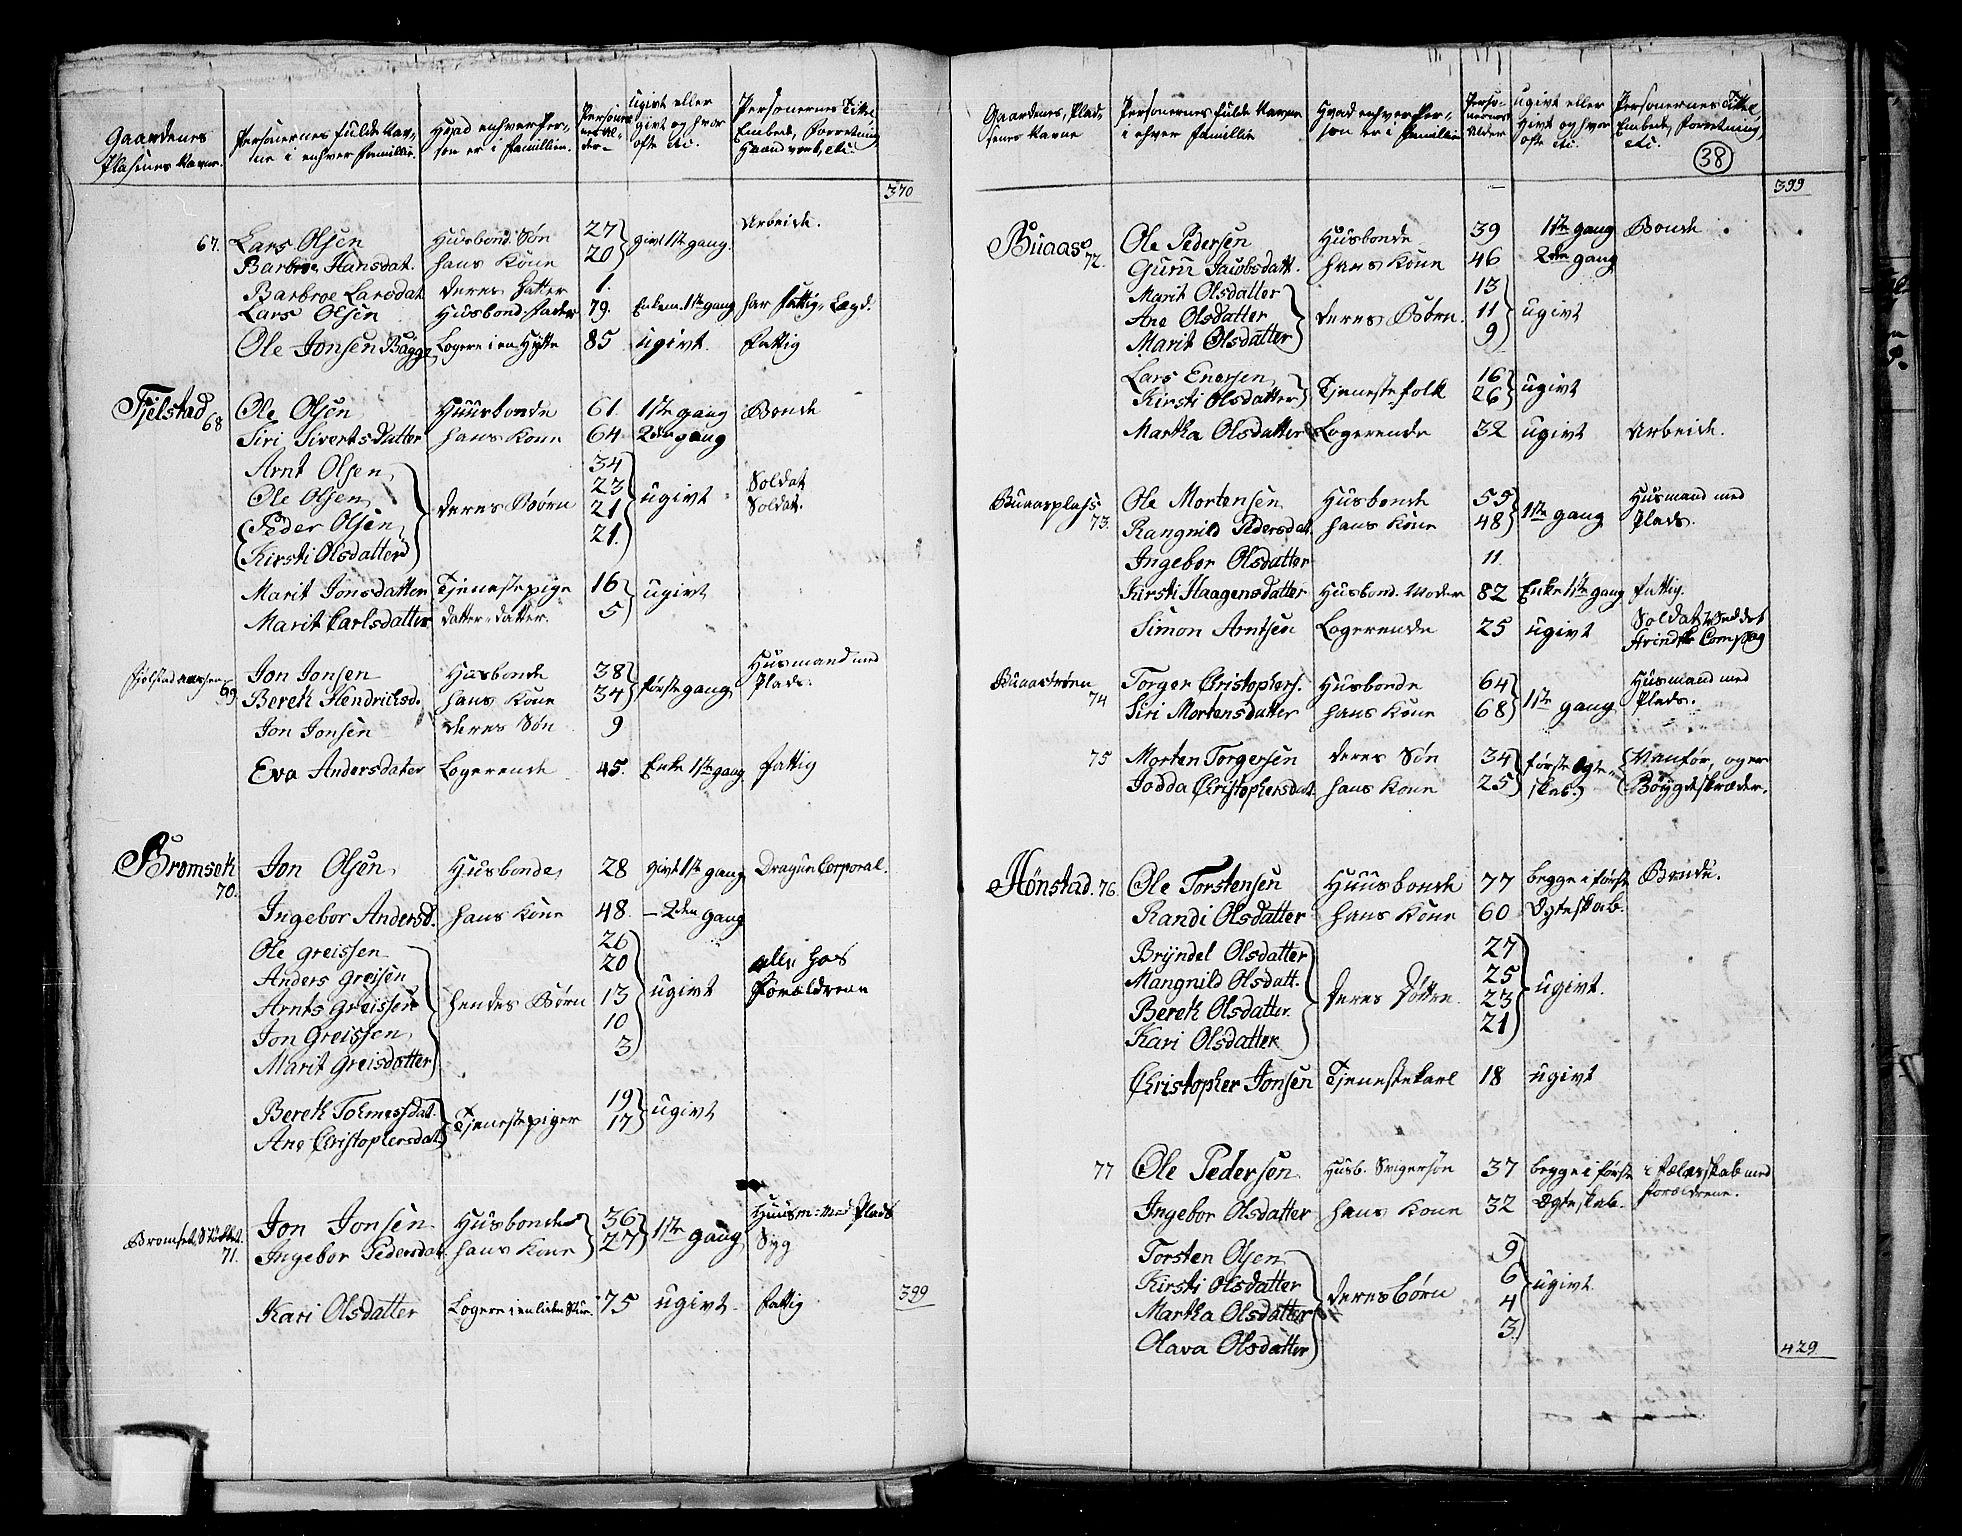 Gaardenes Plasenes Navne. | Personernes fulde Nav-ne i enhver Famillie. | Hvad enhver Per-son er i Famillien. | Personernes Al-der | ugivt eller givt og hvor ofte etc. | Personernes Titel, Embede, Forretning, Haandverk, etc.
370
Arbeide.
67. Lars Olsen Husbond. Søn 27 givt 1ste gang.
Barbroe Hansdat. hans Kone 20
Barbroe Larsdat. deres Datter 1.
Lars Olsen Husbond: Fader 79. Enkem. 1ste gang har Fattig-Lægd.
Ole Jonsen Bagge Logere i en Hytte 85 ugivt. Fattig
Fjelstad 68 Ole Olsen Huusbonde 61. 1ste gang Bonde
Siri Sivertsdatter hans Kone 64 2den gang
Arnt Olsen 34
Ole Olsen 23 Soldat
Peder Olsen deres Børn 21 ugivt Soldat.
Kirsti Olsdatter 21.
Marit Jonsdatter Tjenestepige 16 ugivt
Marit Carlsdatter datter-datter. 5
69 Jon Jonsen Husbonde 38 første gang Husmand med
Berek Hendriksd. hans Kone 34 Plads.
Jon Jonsen deres Søn 9
Eva Andersdater Logerende 45. Enke 1ste gang Fattig
Bromsek 70. Jon Olsen Husbonde 28 givt 1ste gang Dragun Corporal.
Ingebor Andersd. hans Kone 48. - 2den gang
Ole Greissen 26
Anders Greisen 20 alle hos
Arnts Greissen hendes Børn 13 ugivt Forældrene
Jon Greissen 10
Marit Greisdatter 3
Berek Tolmessdat. Tjenestepiger 19 ugivt
Ane Christophersdat 17
71. Jon Jonsen Husbonde 36 1ste gang Huusm: med Plads
Ingebor Pedersdat hans Kone 27 Syg
Kari Olsdatter Logere i en liden Stue 75 ugivt. Fattig
399
Gaardenes, Plad-senes Navne | Personernes fulde Navne i ehver Famillie | Hvad enhver Per-son er i Famillien | Perso-nernes Alder | ugivt eller Givt og hvor ofte etc. | Personernes Titel, Embede, Forretning, etc.
38
399
Buaas 72. Ole Pedersen Husbonde 39 1ste gang Bonde
Guru Jacobsdatt. hans Kone 46 2den gang
Marit Olsdatter 13
Ane Olsdatter deres Børn. 11 ugivt
Marit Olsdatter 9
Lars Enersen Tjenestefolk 16 ugivt
Kirsti Olsdatter 26
Martha Olsdatter Logerende 32 ugivt Arbeide.
Buaasplass 73. Ole Mortensen Husbonde 55 1ste gang Husmand med
Rangnild Pedersdat. hans Kone 48 Plads.
Ingebor Olsdatter 11.
Kirsti Haagensdatter Husbond. Moder 82 Enke 1ste gang Fattig.
Simon Arntsen Logerende 25 ugivt Soldat Ved det
Comp
Buaastrøen 74 Torger Christophers. Husbonde 64 1ste gang Husmand med
Siri Mortensdatter hans Kone 68 Plads.
75 Morten Torgersen deres Søn 34 første Egte- Vanfør, og er
Jodda Christophersdat. hans Kone 25 skab. Bøygdeskræder.
Hønstad. 76. Ole Torstensen Huusbonde 77 begge i første Bonde.
Randi Olsdatter hans Kone 60 Egteskab.
Bryndel Olsdatter 27
Mangnild Olsdatt. deres Døttre. 25 ugivt.
Berek Olsdatter. 23
Kari Olsdatter 21
Christopher Jonsen Tjenestekarl 18 ugivt
77 Ole Pedersen Husb. Svigersøn 37 begge i første i Fælesskab med
Ingebor Olsdatter hans Kone 32 Egteskab. Forældrene.
Torsten Olsen 9
Kirsti Olsdatter deres børn 6 ugivt
Martha Olsdatter 4
Olava Olsdatter 3.
429